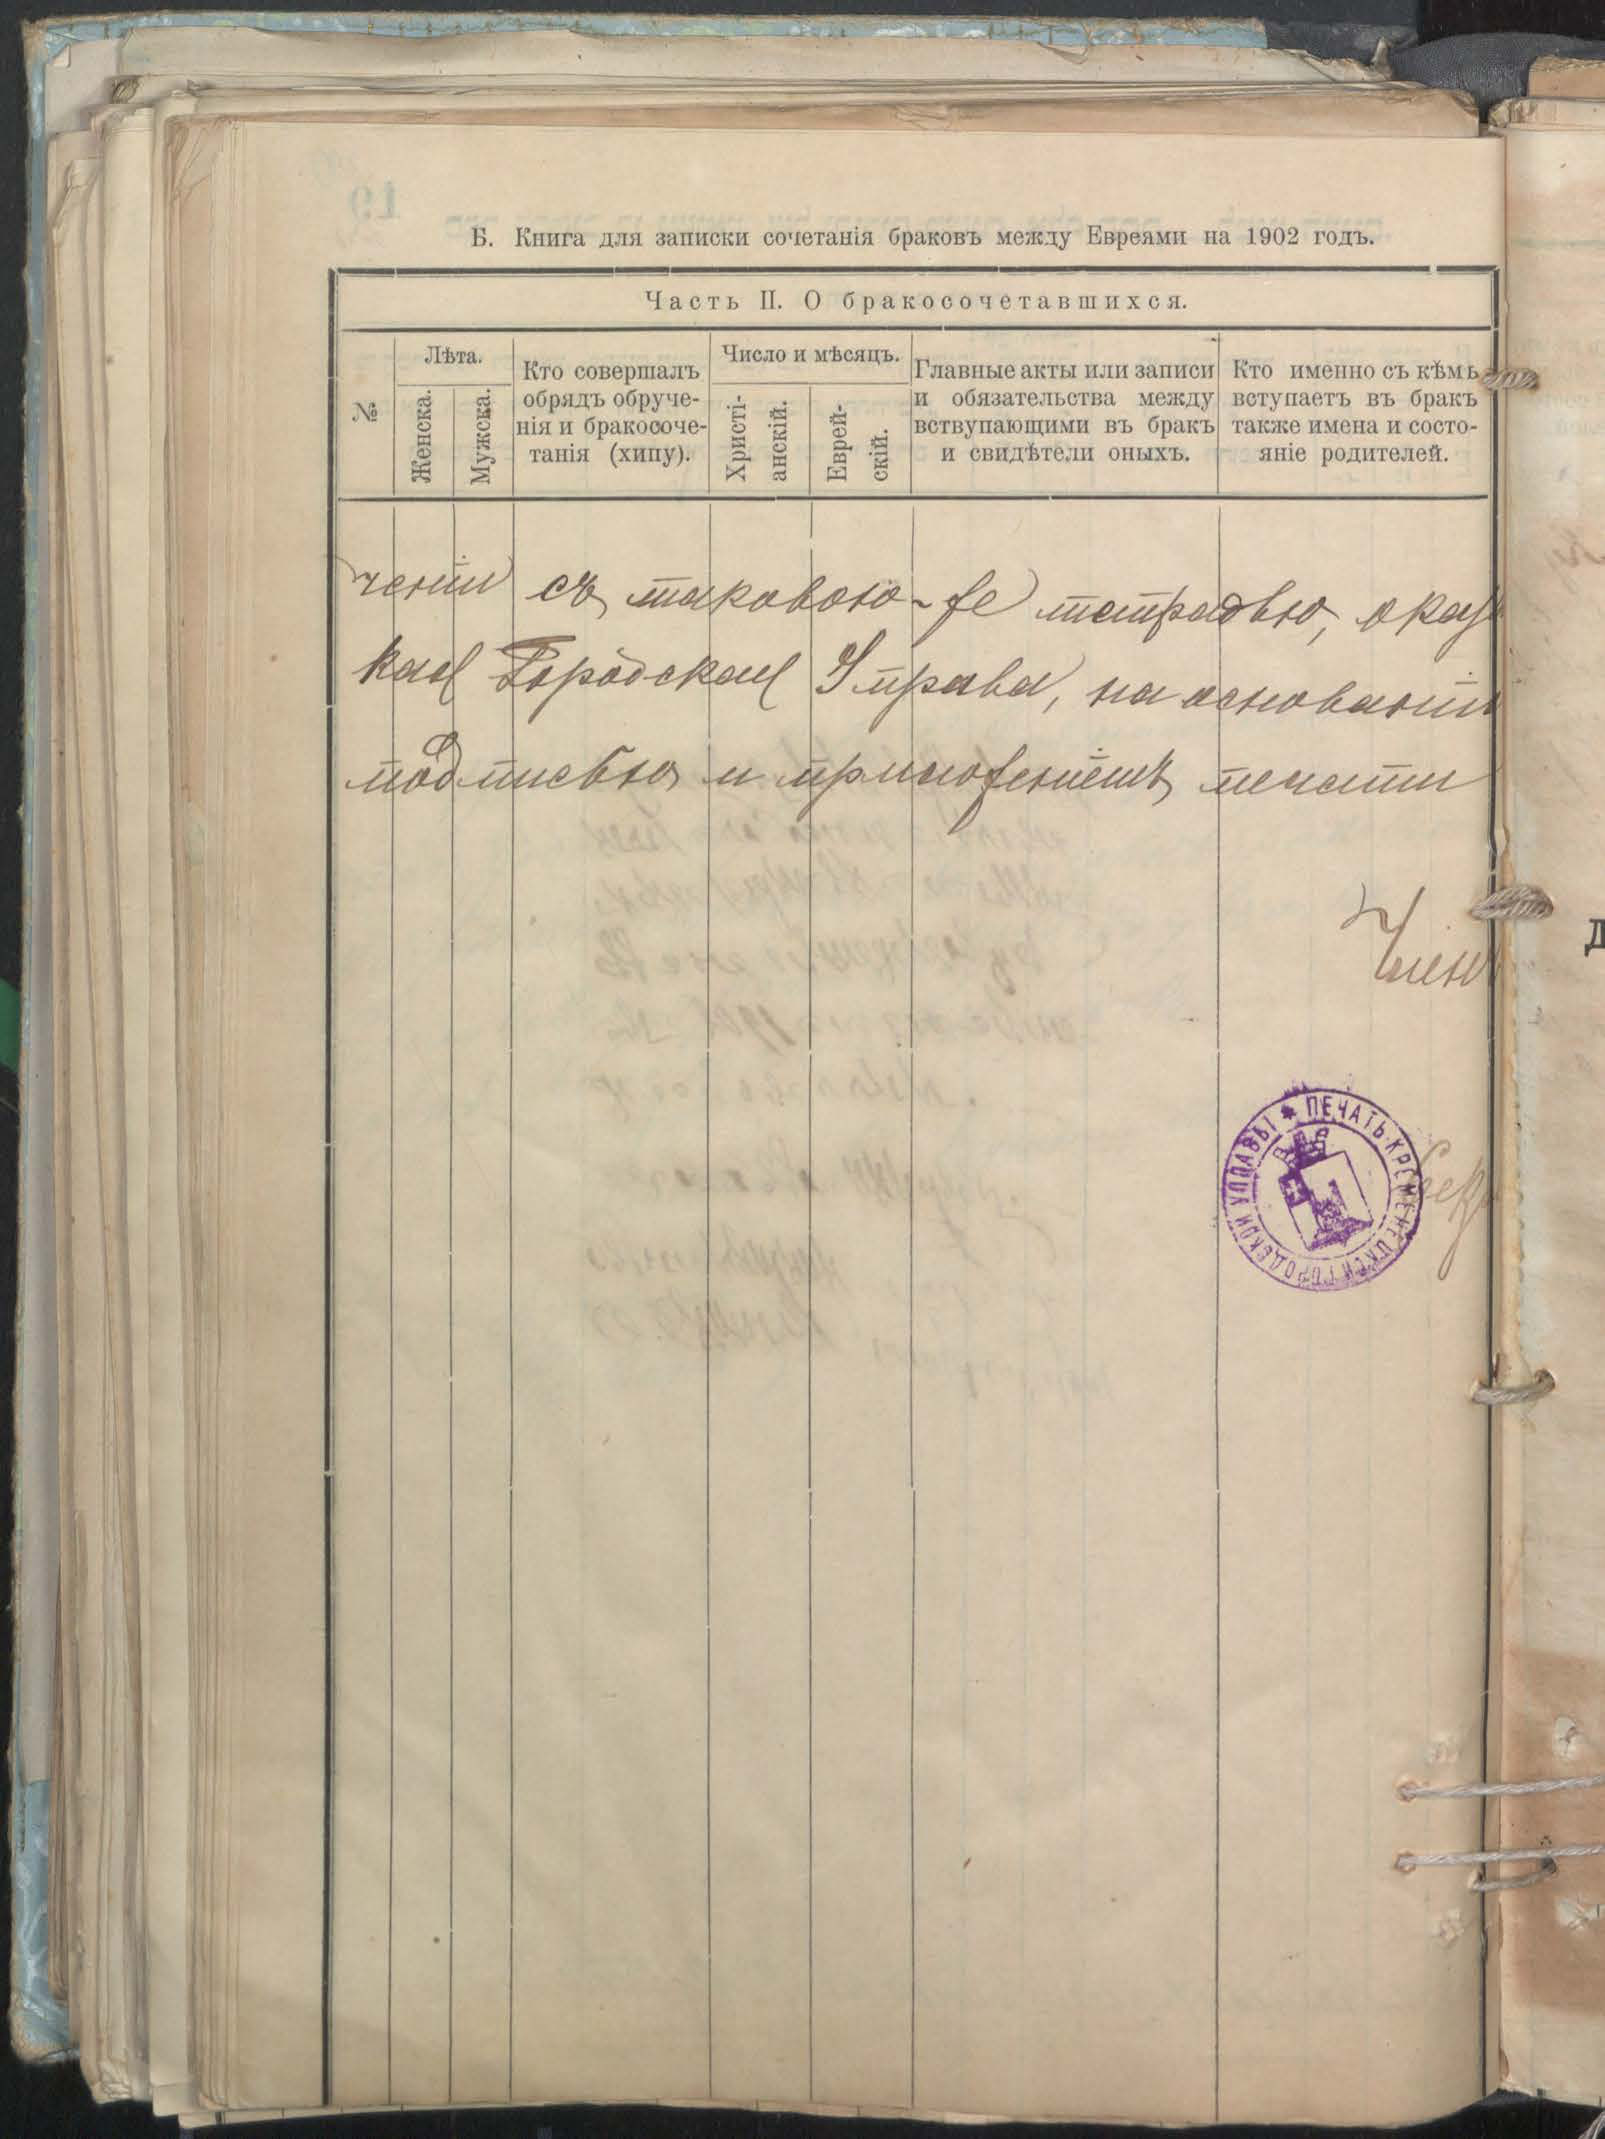 Б. Книга для записки сочетанія браковъ между Евреями на 1902 годъ.
Часть II. О бракосочетавшихся.
№
Лѣта.
Женска.
Мужска.
Кто совершалъ
обрядъ обруче-
нія и бракосоче-
танія (хипу).
Число и мѣсяцъ.
Христі-
анскій.
Еврей-
скій.
Главные акты или записи
и обязательства между
вствупающими въ бракъ
и свидѣтели оныхъ.
Кто именно съ кѣмъ
вступаетъ въ бракъ
также имена и состо-
яніе родителей.
ченіи съ таковою-же тетрадью, оказ
кая Городская Управа, на основаніи
подписью и приложеніемъ печати
Член
ПЕЧАТЬ КРЕМЕНЕЦКОЙ ГОРОДСКОЙ УПРАВЫ
Секр
Д